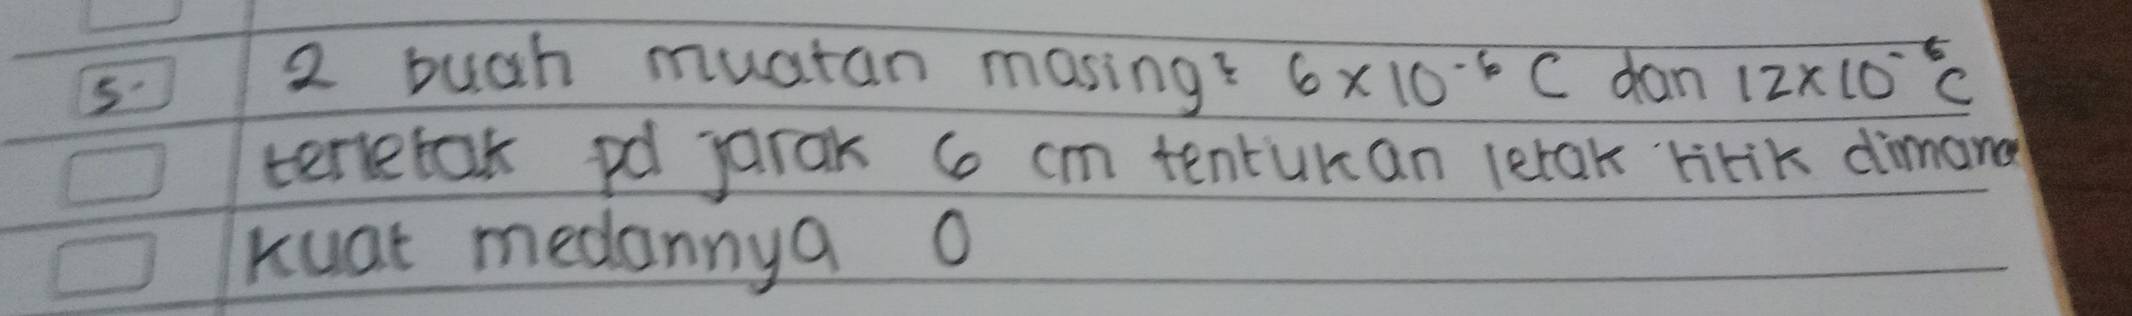 5. 2 buah muatan masing² 6 x 10⁻⁶ C dan 12 x 10⁻⁶ C
terletak pd jarak 6 cm tentukan letak titik dimana
kuat medannya 0